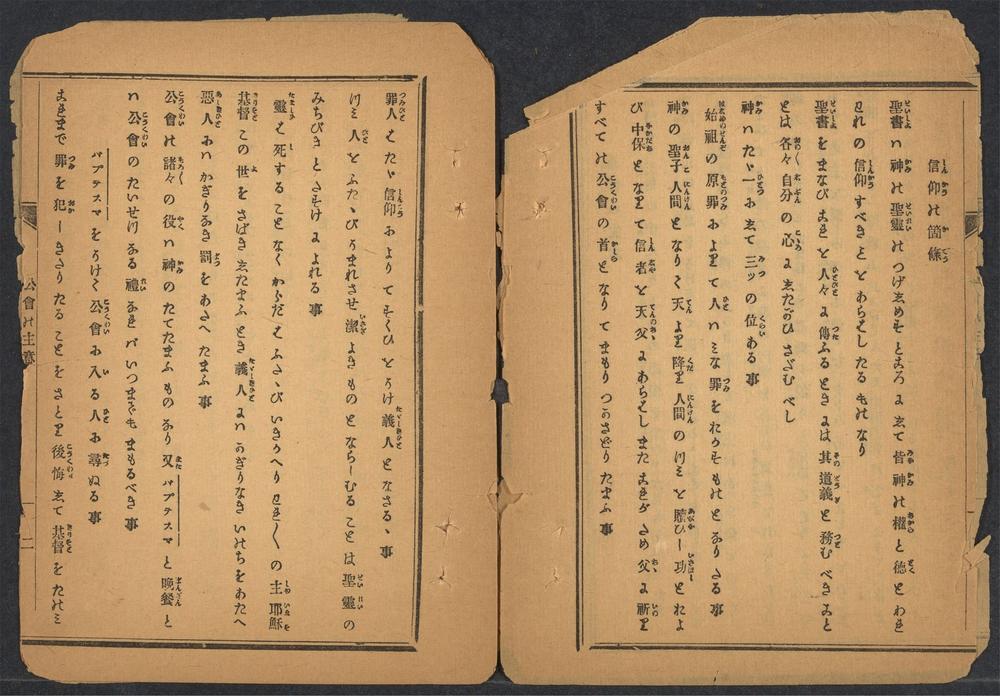 信仰の箇條
聖書ハ神の聖靈のつげしめせしところにして皆神の權と德とわ
れの信仰すべきことをあらはしたるものなり
聖書をまなびまたと人々に傳ふるときには其道義を務むべきこと
とは各々自分の心にしたがひさだむべし
神ハたゞ一にして三ッの位ある事
始祖の原罪によりて人ハミな罪をおかすものとなりたる事
神の聖子人間となりて天より降り人間のつミを贖ひー功をもよ
び中保となりて信者と天父にあらはしまたまたがため父に祈り
すべての公會の首となりてまもりつかさどりたまふ事
罪人ハたゞ信仰によりてすくひをうけ義人となさるゝ事
つミ人をふたゝびうまれさせ潔よきものとならーむることは聖靈の
みちびきとたすけによれる事
靈ハ死することなくからだハふたゝびいきかへりわれ〳〵の主耶穌
基督この世をさばきしたまふとき義人にハかぎりなきいのちをあたへ
惡人にハかぎりなき罰をあたへたまふ事
公會の諸々の役ハ神のたてたまふものなり又バプテスマと晩餐と
ハ公會のたいせつなる禮なれバいつまでもまもるべき事
バプテスマをうけて公會に入る人に尋ぬる事
いままで罪を犯ーきたりたることをさとり後悔して基督をたのミ
公會の主意
二